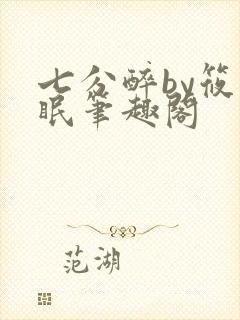 七分醉by筱
眠笔趣阁
范湖